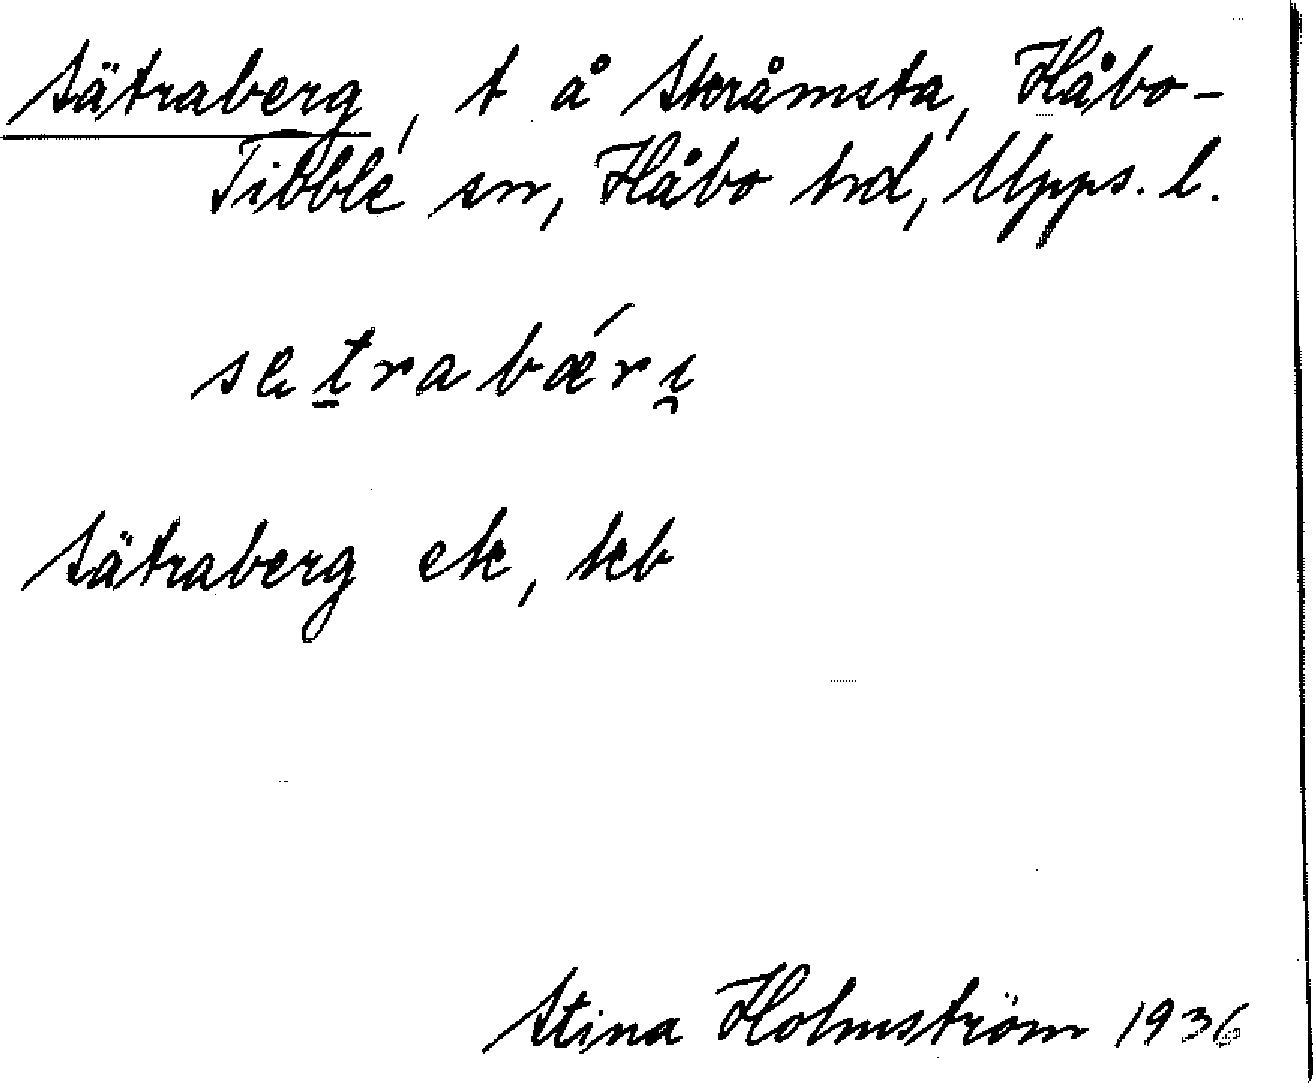 Sätraberg, t å Skråmsta, Håbo-
Tibble sn, Håbo hd, Upps. l.
Sätraberg ek, kb
Stina Holmström 1936